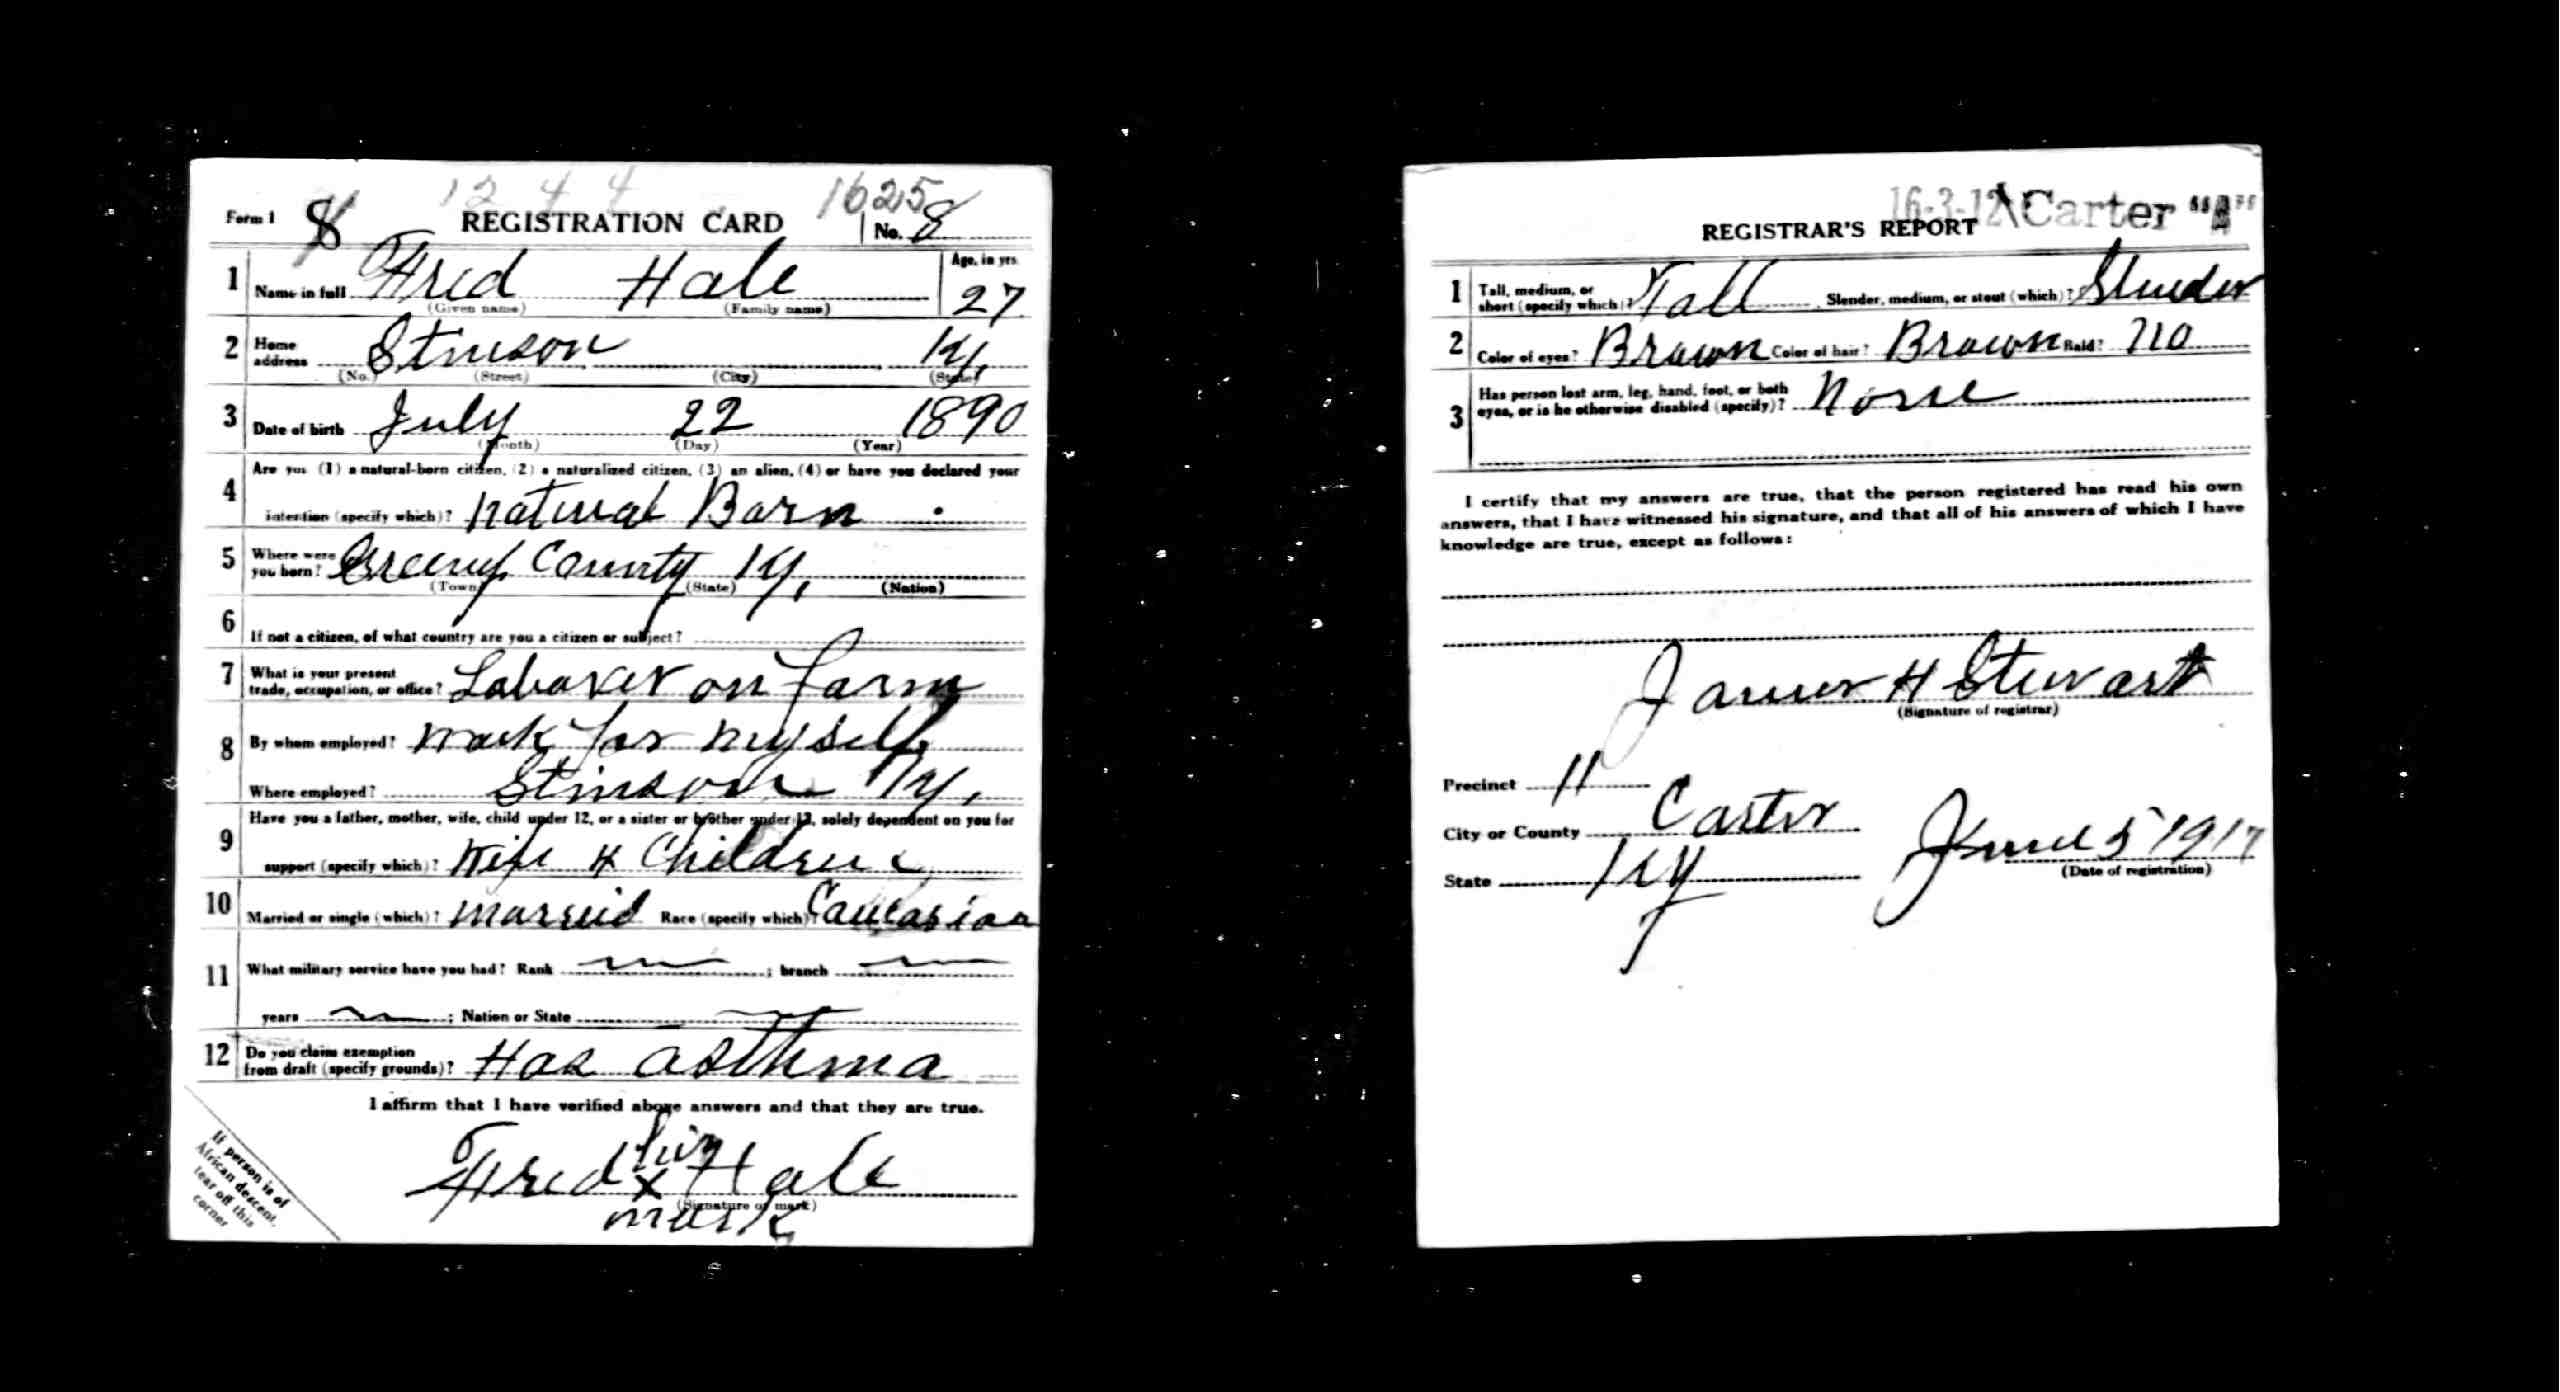 1244 1625
Form 1 8 REGISTRATION CARD No. 8
1 Name in full Fred Hale Age, in yrs.
(Given name) (Family name) 27
2 Home address Stinson Ky,
(No.) (Street) (City) (State)
3 Date of birth July 22 1890
(Month) (Day) (Year)
4 Are you (1) a natural-born citizen, (2) a naturalized citizen, (3) an alien, (4) or have you declared your
intention (specify which)? Natural Born
5 Where were you born? Greenup County Ky,
(Town) (State) (Nation)
6 If not a citizen, of what country are you a citizen or subject?
7 What is your present
trade, occupation, or office? Laborer on farm
8 By whom employed? Work for myself
Where employed? Stinson Ky,
9 Have you a father, mother, wife, child under 12, or a sister or brother under 12, solely dependent on you for
support (specify which)? Wife & Children
10 Married or single (which)? Married Race (specify which)? Caucasian
11 What military service have you had? Rank ; branch
years ; Nation or State
12 Do you claim exemption
from draft (specify grounds)? Has asthma
I affirm that I have verified above answers and that they are true.
his
Fred x Hale
(Signature or mark)
mark
If person is of
African descent,
tear off this
corner
16-3-12 A Carter
REGISTRAR'S REPORT
1 Tall, medium, or
short (specify which)? Tall Slender, medium, or stout (which)? Slender
2 Color of eyes? Brown Color of hair? Brown Bald? No
3 Has person lost arm, leg, hand, foot, or both
eyes, or is he otherwise disabled (specify)? None
I certify that my answers are true, that the person registered has read his own
answers, that I have witnessed his signature, and that all of his answers of which I have
knowledge are true, except as follows:
James H Stewart
(Signature of registrar)
Precinct 11
City or County Carter
State Ky June 5 1917
(Date of registration)